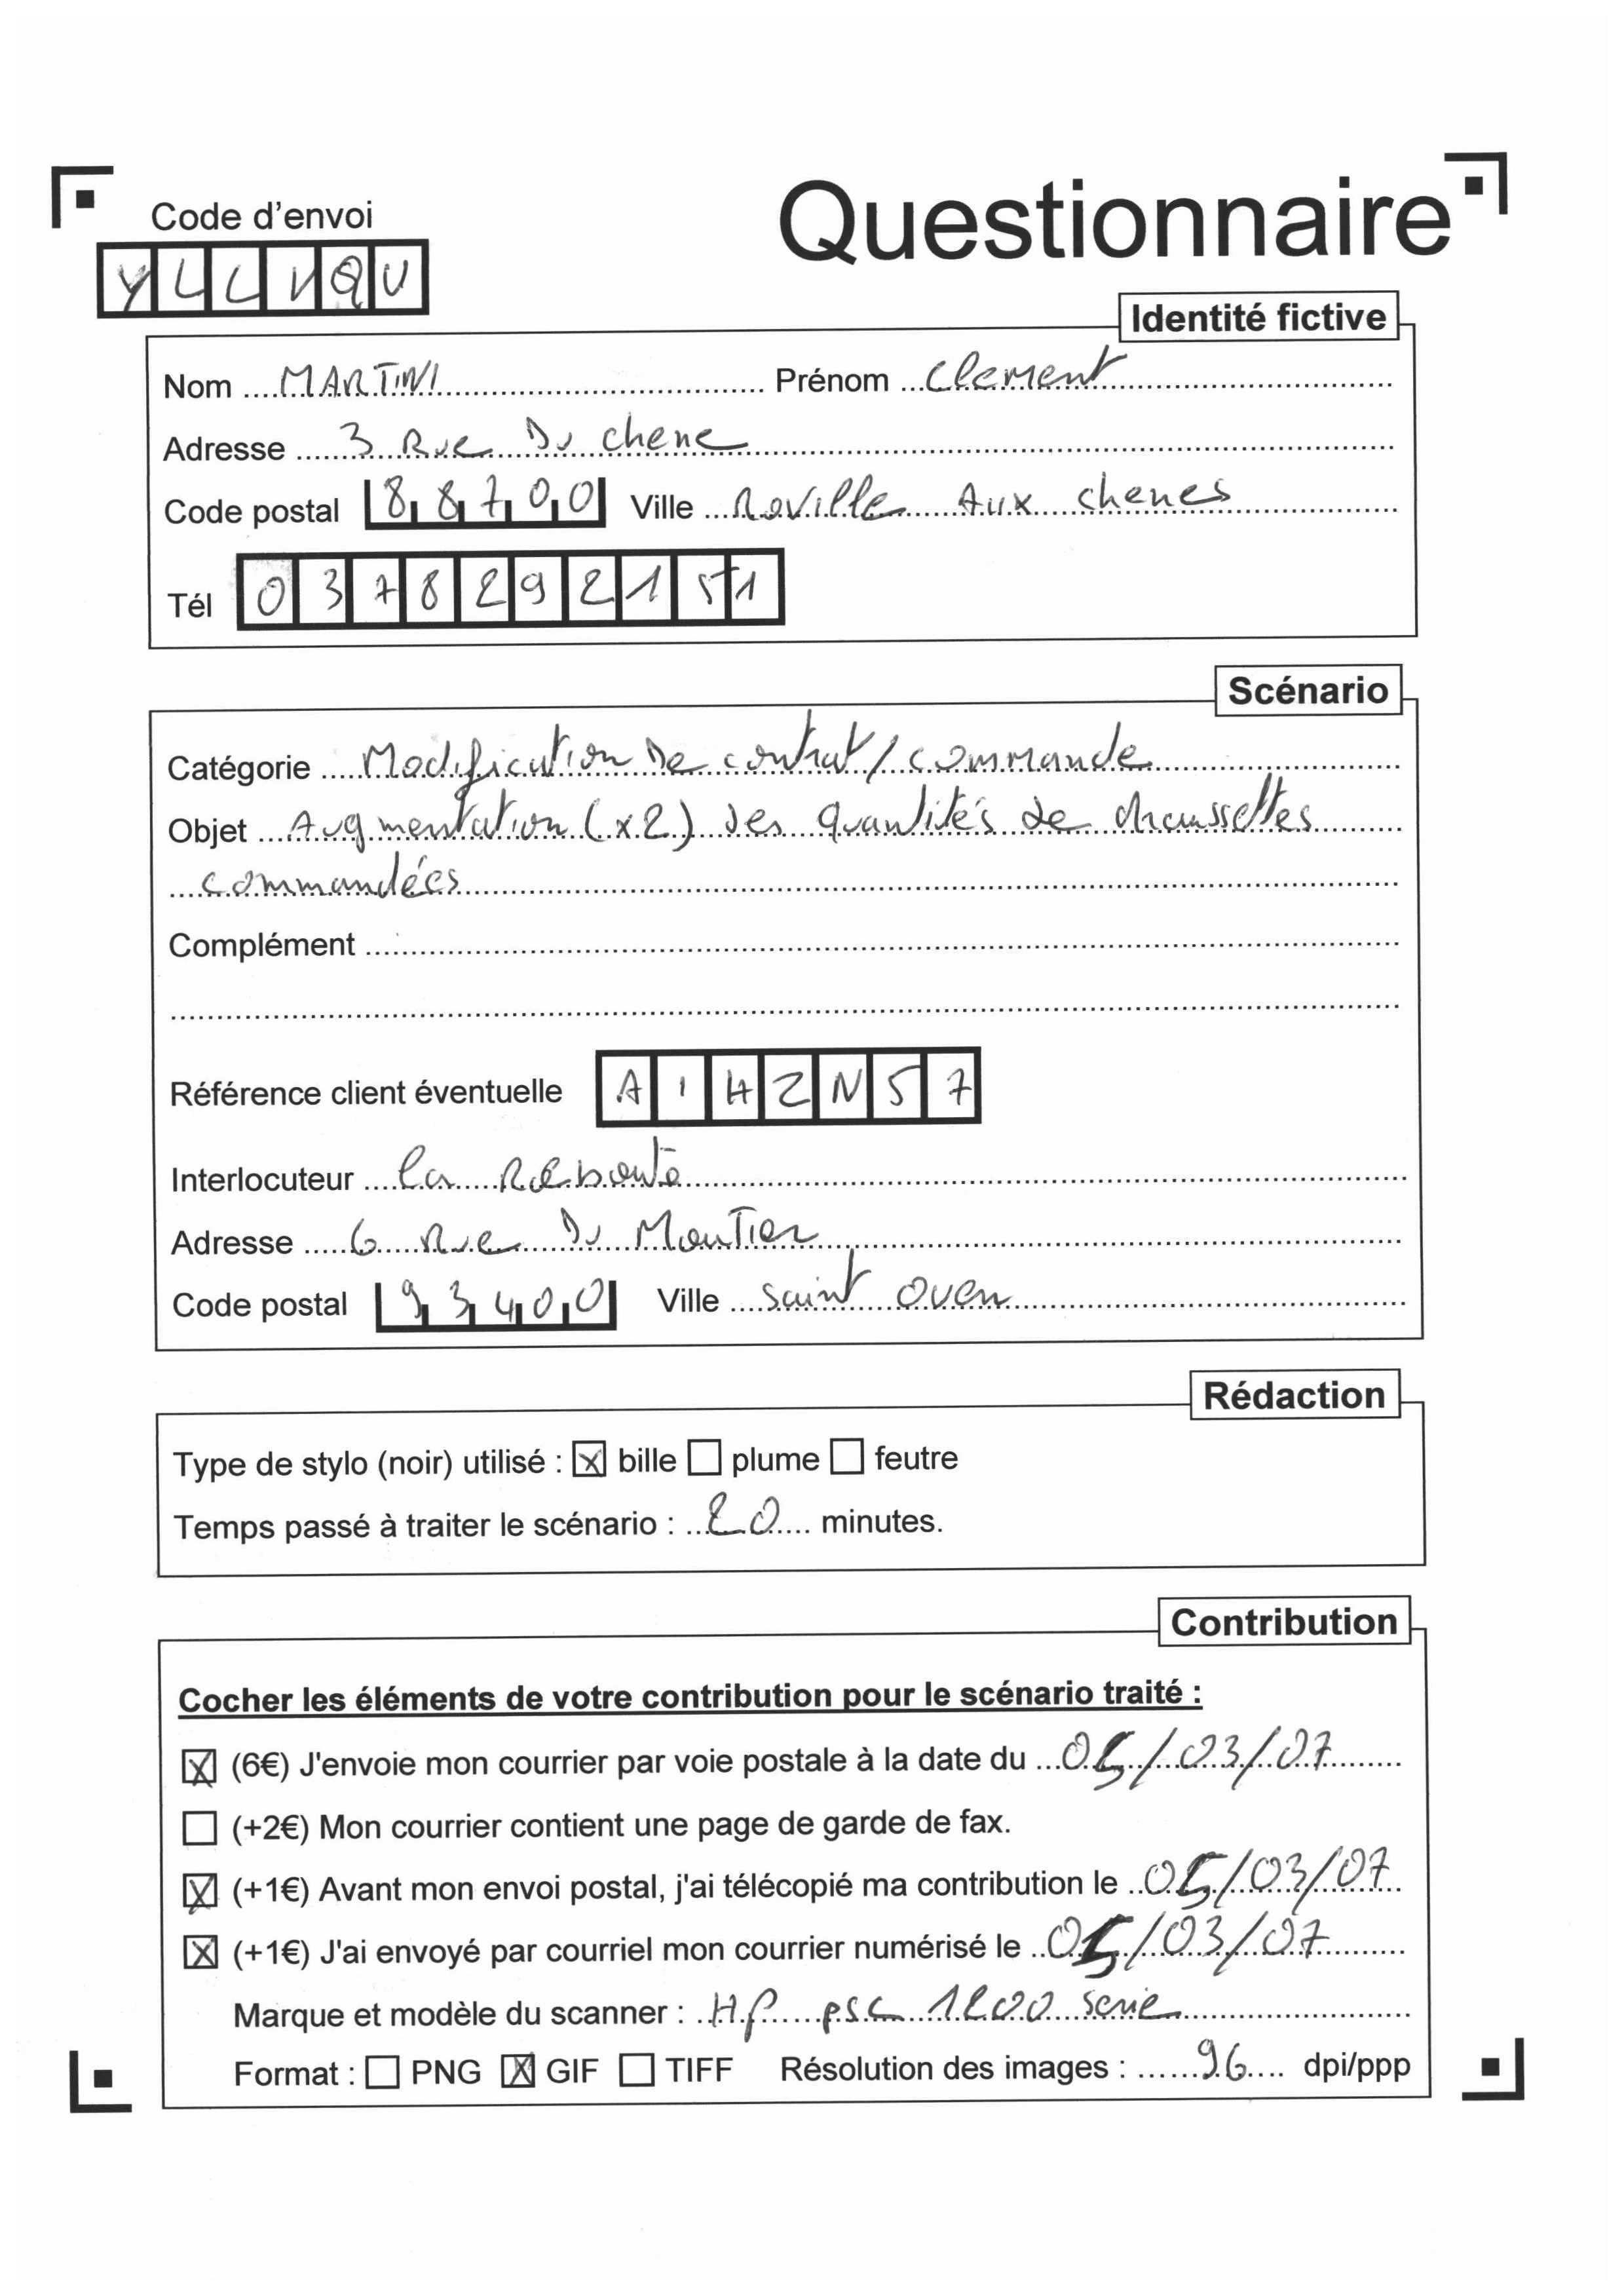 Questionnaire
Code d'envoi
YLLVQU
Identité fictive
Nom MARTINI Prénom Clement
Adresse 3 Rue Du chene
Code postal 88700 Ville Roville Aux chenes
Tél 0378292151
Scénario
Catégorie Modification De contrat/commande
Objet Augmentation (x2) des quantités de chaussettes
commandées
Complément
Référence client éventuelle A1HZN57
Interlocuteur la Reboute
Adresse 6 Rue Du Moutier
Code postal 93400 Ville Saint Ouen
Rédaction
Type de stylo (noir) utilisé : bille plume feutre
Temps passé à traiter le scénario : 20 minutes.
Contribution
Cocher les éléments de votre contribution pour le scénario traité :
(6€) J'envoie mon courrier par voie postale à la date du 05/03/07
(+2€) Mon courrier contient une page de garde de fax.
(+1€) Avant mon envoi postal, j'ai télécopié ma contribution le 05/03/07
(+1€) J'ai envoyé par courriel mon courrier numérisé le 05/03/07
Marque et modèle du scanner : HP psc 1200 serie
Format : PNG GIF TIFF Résolution des images : 96 dpi/ppp